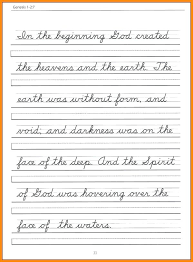 Genesis 1-2:1
In the beginning God created
the heavens and the earth. The
earth was without form, and
void; and darkness was on the
face of the deep. And the Spirit
of God was hovering over the
face of the waters.